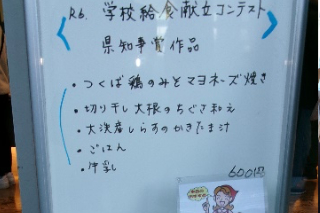 R6. 学校給食献立コンテスト
県知事賞作品
・つくば鶏のみそマヨネーズ焼き
・切り干し大根のちぐさ和え
・大洗産しらすのかきたま汁
・ごはん
・牛乳
600円